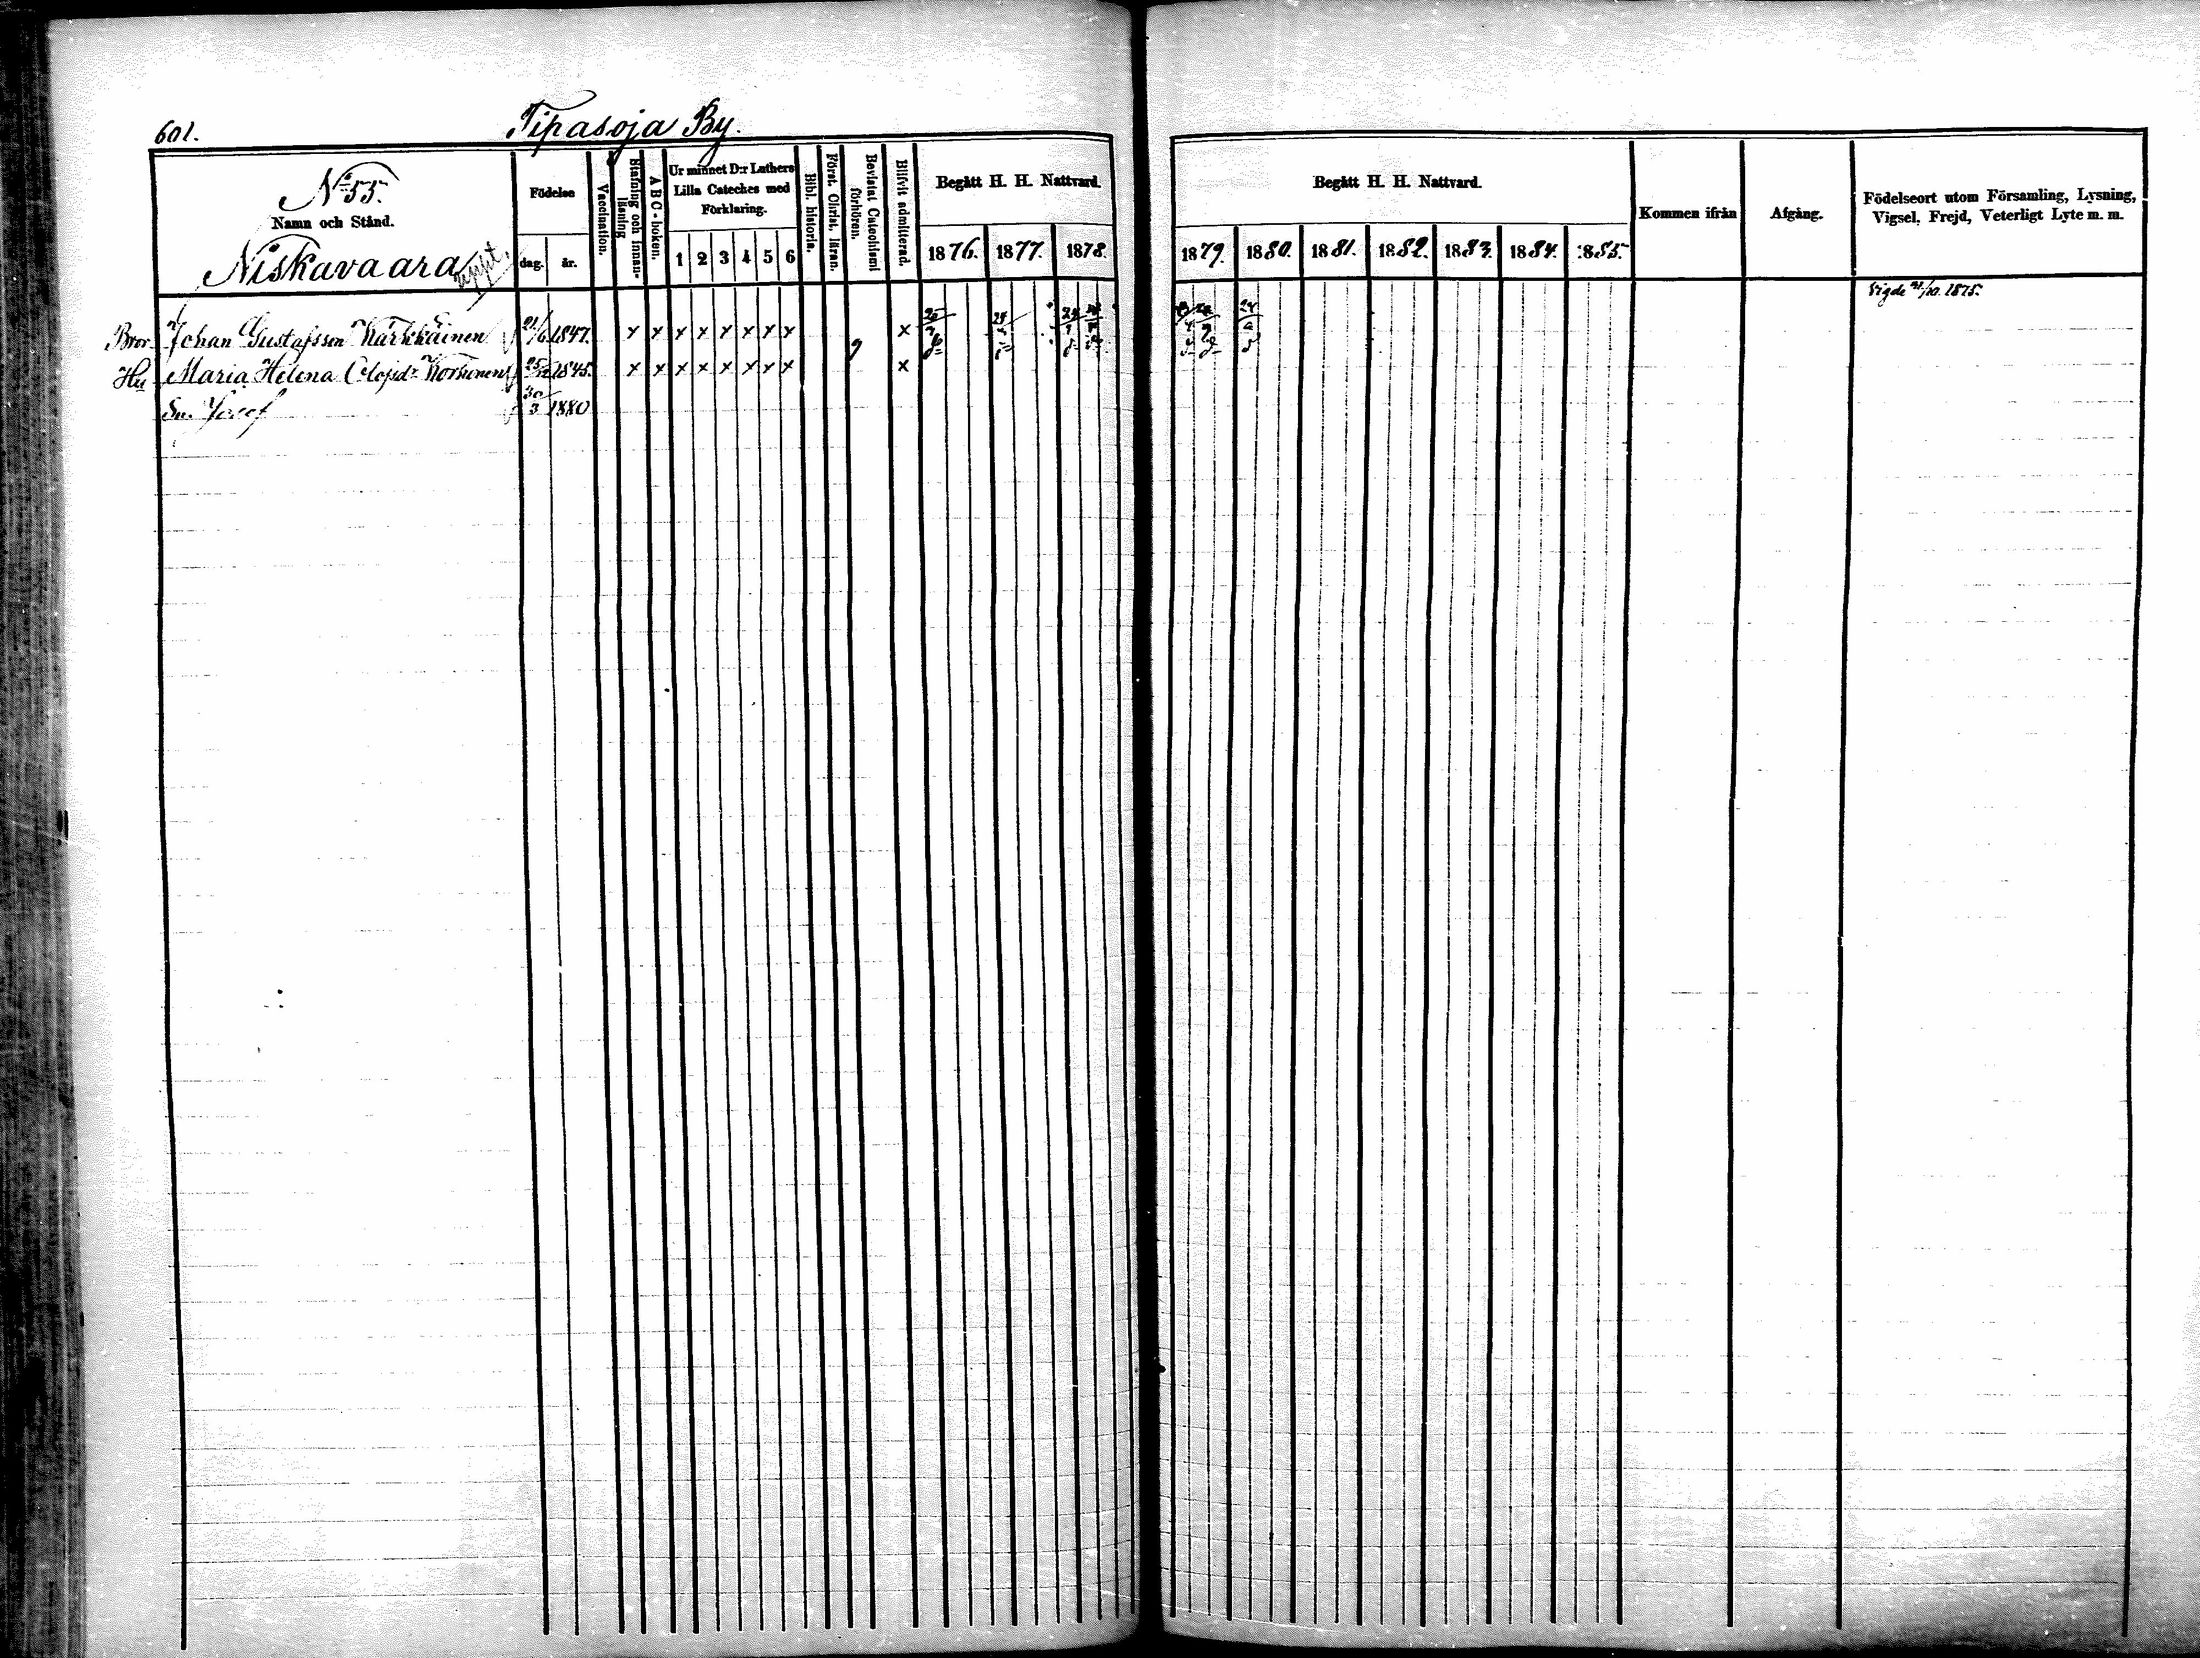 601.
Tipasoja By.
N:o 55.
Namn och Stånd.
Niskavaara
Födelse
dag. år.
Vaccination.
Stafning och innan-läsning
A B C-boken.
Ur minnet D:r Luthers
Lilla Cateches med
Förklaring.
1 2 3 4 5 6
Bibl. historia.
Först. Christ. läran.
Bevistat Catechismi förhören.
Blifvit admitterad.
Begått H. H. Nattvard.
1876. 1877. 1878.
Begått H. H. Nattvard.
1879. 1880. 1881. 1882. 1883. 1884. 1885.
Kommen ifrån
Afgång.
Födelseort utom Församling, Lysning,
Vigsel, Frejd, Veterligt Lyte m. m.
Vigde 21/10. 1875.
Bror Johan Gustafsson Kärkkäinen 21/6 1847. x x x x x x x x x
Hu Maria Helena Clojid:r Korhonen 1845. x x x x x x x x x
Sn. Josef 30/3 1880